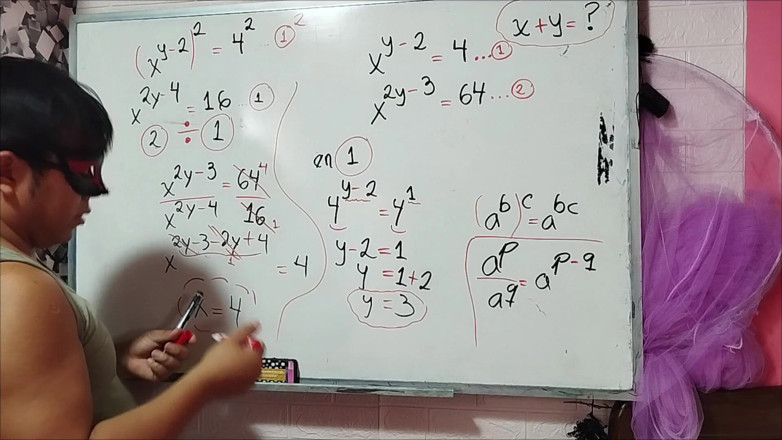 (x^{y-2})^2 = 4^2 ①^2
x^{2y-4} = 16 ... ①
② ÷ ①
x^{2y-3} = 64 4
x^{2y-4} 16 1
x^{2y-3-2y+4} = 4
1
x = 4
x^{y-2} = 4 ... ①
x^{2y-3} = 64 ... ②
x+y=?
en ①
4^{y-2} = 4^1
y-2=1
y = 1+2
y = 3
(a^b)^c = a^{bc}
a^p/a^q = a^{p-q}